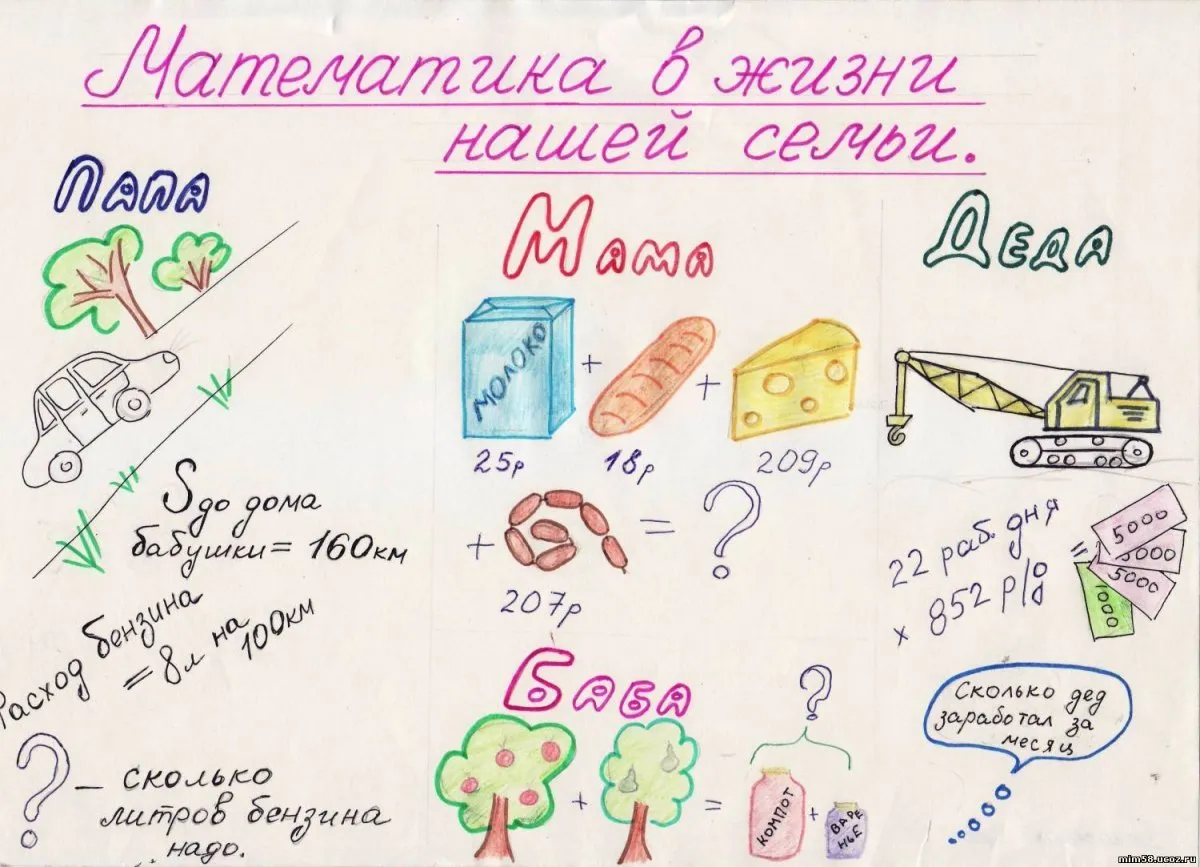 Математика в жизни
нашей семьи.
Папа
S до дома
бабушки = 160км
Расход бензина
= 8л на
100км
? — сколько
литров бензина
надо.
Мама
МОЛОКО
+
+
25р
18р
209р
+
= ?
207р
Баба
?
+
=
КОМПОТ
+
ВАРЕ
НЬЕ
Деда
22 раб. дня
х 852 р/д
=
5000
5000
5000
1000
Сколько дед
заработал за
месяц
mim58.ucoz.ru